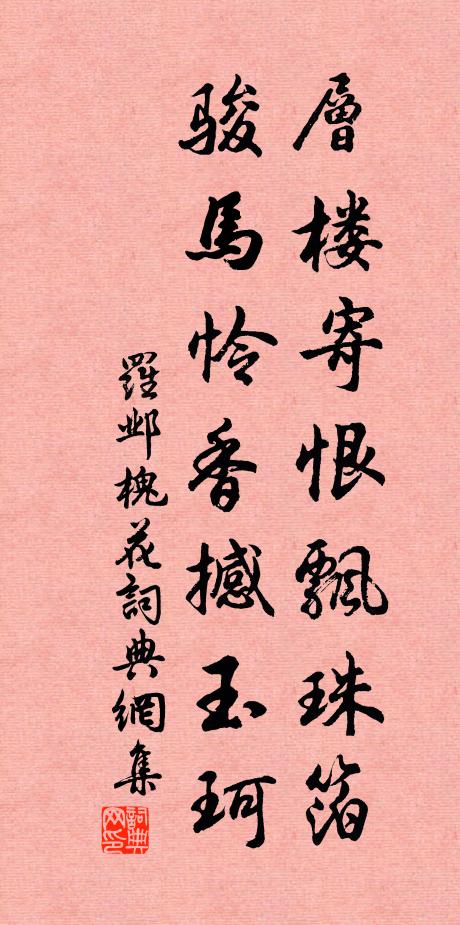 層楼寄恨飄珠箔
骏馬怜香撼玉珂
羅邺槐花詞典網集
詞典網印